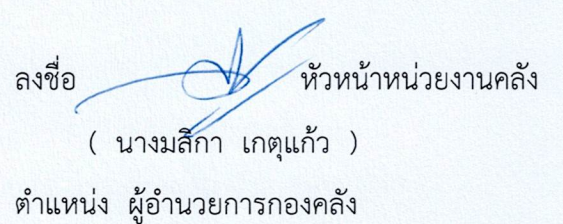 ลงชื่อ หัวหน้าหน่วยงานคลัง
( นางมสิกา เกตุแก้ว )
ตำแหน่ง ผู้อำนวยการกองคลัง